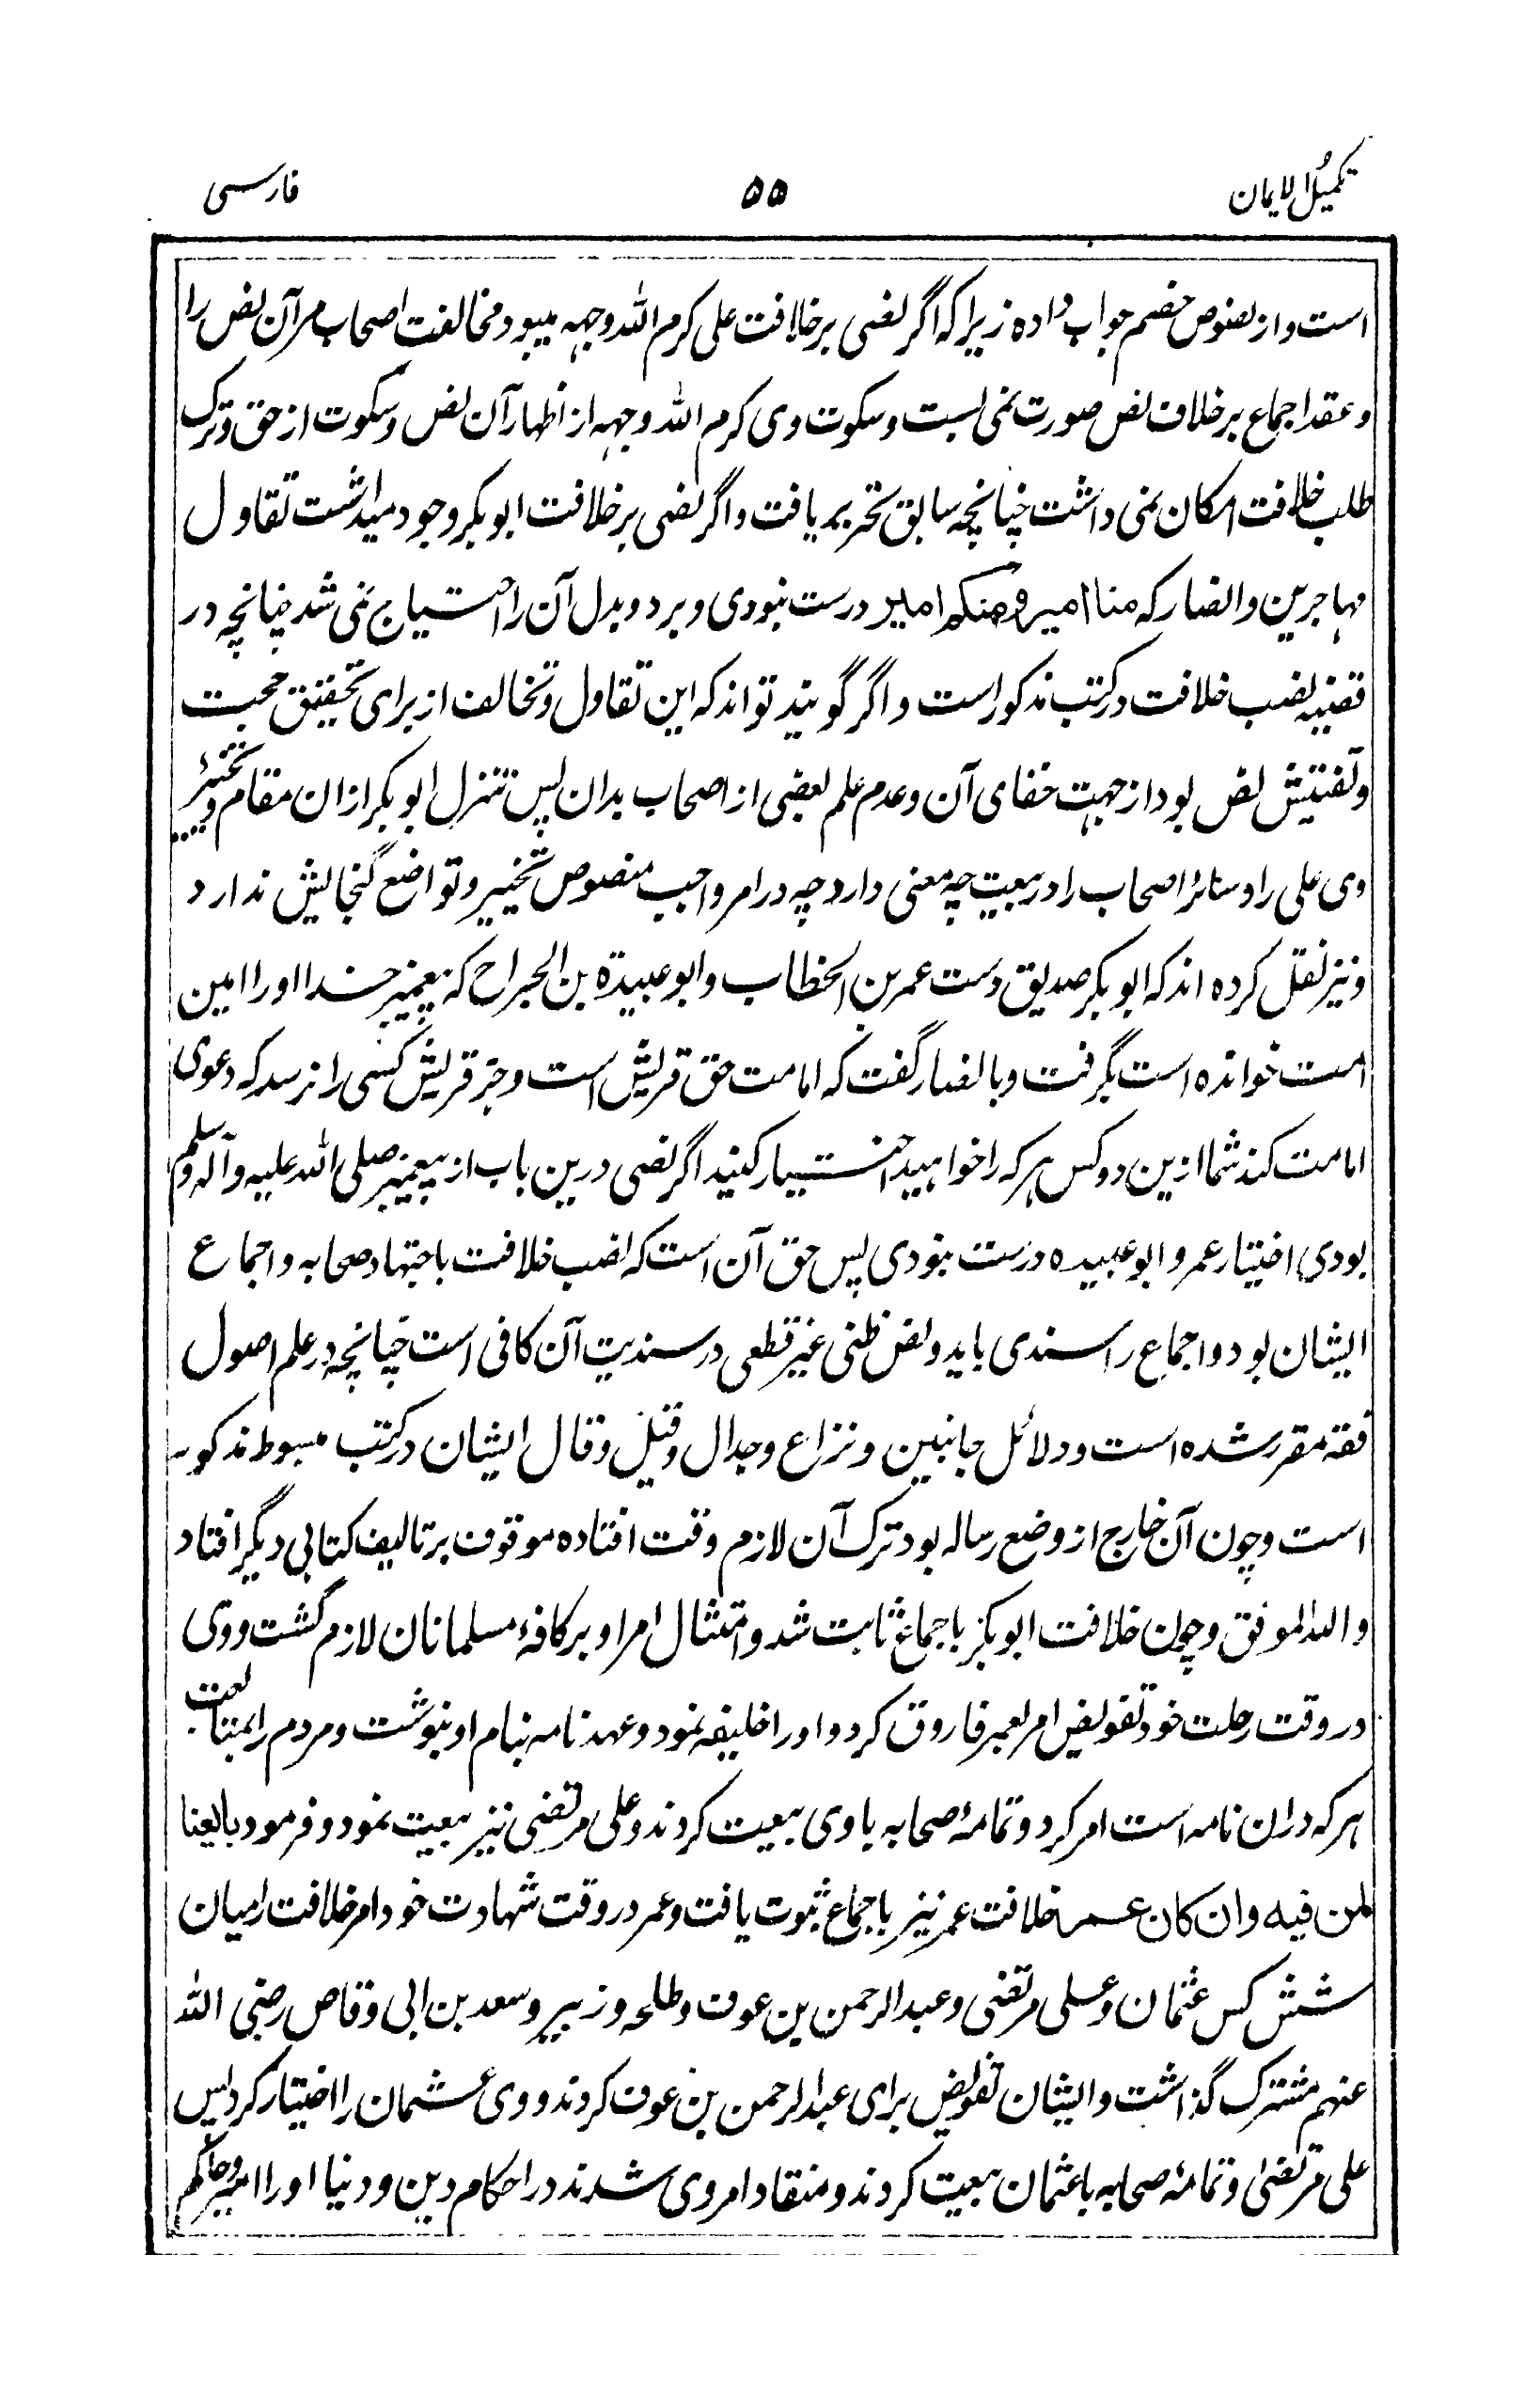 تکمیل الایمان ۵۵ فارسی
است و از نصوص خصم جواب داده زیرا که اگر نصی بر خلافت علی کرم الله وجهه میبود مخالفت اصحاب مر آن نص را
و عقد اجماع بر خلاف نص صورت نمی بست و سکوت وی کرم الله وجهه از اظهار آن نص و سکوت از حق و ترک
طلب خلافت امکان نمی داشت چنانچه سابق تحریر یافت و اگر نصی بر خلافت ابوبکر وجود میداشت تقاول
مهاجرین و انصار که منا امیر و منکم امیر درست نبودی و برد و بدل آن را احتیاج نمی شد چنانچه در
قضیه نصب خلافت در کتب مذکور است و اگر گویند تواند که این تقاول و تخالف از برای تحقیق حجت
و تفتیش نص بود از جهت خفای آن و عدم علم بعضی از اصحاب بدان پس تنزل ابوبکر ازان مقام و تخییر
وی علی را و سائر اصحاب را در بیعت چه معنی دارد چه در امر واجب منصوص تخییر و تواضع گنجایش ندارد
و نیز نقل کرده اند که ابوبکر صدیق دست عمر بن الخطاب و ابو عبیدة بن الجراح که پیغمبر خدا او را امین
امت خوانده است بگرفت و با انصار گفت که امامت حق قریش است و جز قریش کسی را نرسد که دعوی
امامت کند شما ازین دو کس هر که را خواهید اختیار کنید اگر نصی درین باب از پیغمبر صلی الله علیه وآله وسلم
بودی اختیار عمر و ابو عبیده درست نبودی پس حق آن است که نصب خلافت باجتهاد صحابه و اجماع
ایشان بود و اجماع را سندی باید و نص ظنی غیر قطعی در سندیت آن کافی است چنانچه در علم اصول
فقه مقرر شده است و دلائل جانبین و نزاع و جدال و قیل و قال ایشان در کتب مبسوط مذکور
است و چون آن خارج از وضع رساله بود ترک آن لازم وقت افتاده موقوف بر تالیف کتابی دیگر افتاد
والله الموفق و چون خلافت ابوبکر باجماع ثابت شد و امتثال امر او بر کافهٔ مسلمانان لازم گشت و وی
در وقت رحلت خود تفویض امر بعمر فاروق کرد و او را خلیفه نمود و عهد نامه بنام او بنوشت و مردم را بمتابعت
هر که دران نامه است امر کرد و تمامهٔ صحابه با وی بیعت کردند و علی مرتضی نیز بیعت نمود و فرمود بایعنا
لمن فیه وان کان عمر خلافت عمر نیز باجماع ثبوت یافت و عمر در وقت شهادت خود امر خلافت را میان
شش کس عثمان و علی مرتضی و عبدالرحمن بن عوف و طلحه و زبیر و سعد بن ابی وقاص رضی الله
عنهم مشترک گذاشت و ایشان تفویض برای عبدالرحمن بن عوف کردند و وی عثمان را اختیار کرد پس
علی مرتضیٰ و تمامهٔ صحابه با عثمان بیعت کردند و منقاد امر وی شدند در احکام دین و دنیا او را امیر و حاکم